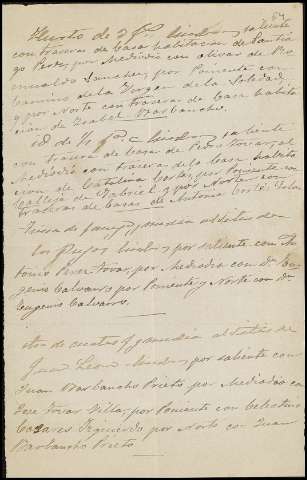 64
Huerto de 3 fs. linda p. saliente
con traseras de Casa habitacion de Santia
go Perez, por Mediodia con olivar de Ro
mualdo Sanchez, por Poniente con
Camino de la Virgen de la Soledad,
y por Norte con traseras de Casa habita
cion de Isabel Barbancho.
id de ½ f. linda p. saliente
con trasera de Casa de Pedro Tovar, al
Mediodia con trasera de la Casa habita
cion de Catalina Cortes, por Poniente con
Calleja de Gabriel y por Norte con
traseras de Casas de Antonia Cortés,
Tierra de fanega y media al sitio de
los Pujos linda por saliente con An
tonio Perez Tovar, por Mediodia con Dn. Eu
genio Calvarro, por Poniente y Norte con Dn.
Eugenio Calvarro.
otra de cuatro f. y media al sitio de
Juan Leon linda por saliente con
Juan Barbancho Prieto, por Mediodia con
Jose Tovar Villa, por Poniente con Celestino
Cazares Izquierdo por Norte con Juan
Barbancho Prieto